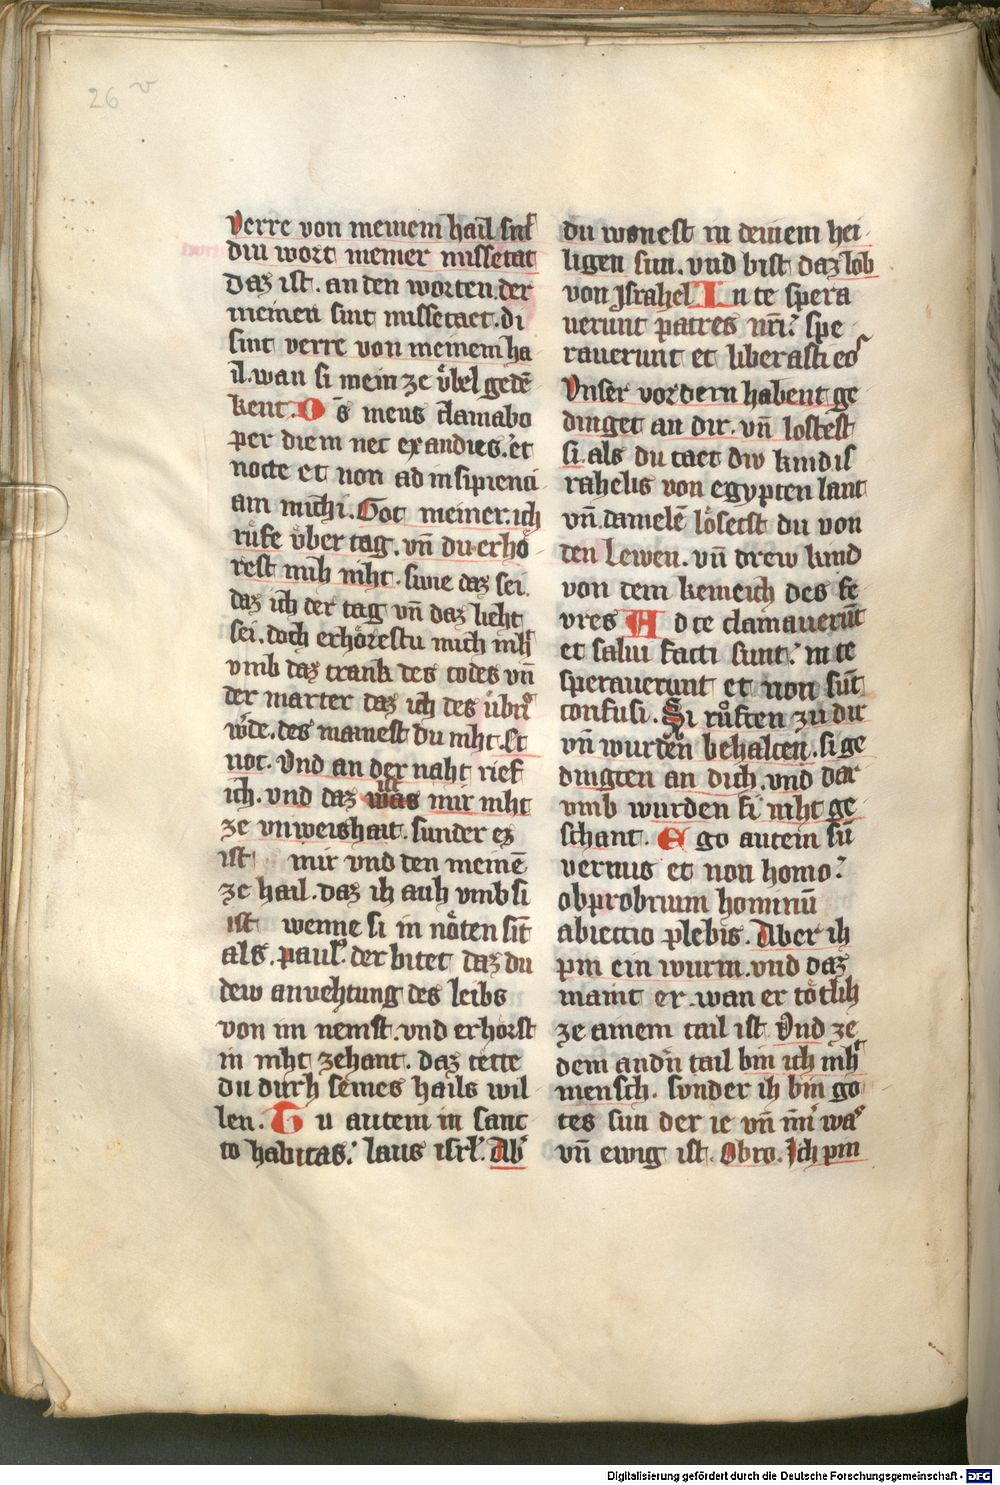 26 v
Verre von meinem hail sint
diu wort meiner missetat
Daz ist. an den worten. der
meinen sint missetaet. di
sint verre von meinem ha
il. wan si mein ze v̊bel gedē
kent. O s̄ meus clamabo
per diem nec exaudies. et
nocte et non ad insipienci
am michi. Got meiner. ich
růfe v̊ber tag. vn̄ du erhö
rest mih niht. sune daz sei.
daz ich der tag vn̄ daz licht
sei. doch erhörestu mich niht
vmb daz trank des todes vn̄
der marter daz ich des v̊brig
wͤrde. des mainest du niht. Et
noc. Vnd an der naht rief
ich. vnd daz was ist mir niht
ze vnweishait. sunder ez
ist mir vnd den meinē
ze hail. daz ih auh vmb si
ist wenne si in nöten sīt
als. paul9. der bitet daz du
dew anvehtung des leibs
von im nemst. vnd erhorst
in niht zehant. daz tette
du durh seines hails wil
len. T u autem in sanc
to habitas. laus isrl. Ab͛
du wonest in deinem hei
ligen sun. vnd bist daz lob
von Israhel I n te spera
uerunt patres nr̄i. spe
rauerunt et liberasti eos
Vnser vordern habent ge
dinget an dir. vn̄ lostest
si. als du taet diw kind is
rahelis von egypten lant
vn̄. danielē lösetst du von
den Lewen. vn̄ drew kind
von dem kemeich des fe
vres A d te clamauerūt
et salui facti sunt. in te
sperauerunt et non sūt
confusi. Si růften zu dir
vn̄ wurden behalten. si ge
dingten an dich. vnd dar
vmb wurden si niht ge
schant. E go autem sū
vermis et non homo.
obprobrium hominū
abiectio plebis. Aber ih
pin ein wurm. vnd daz
maint er. wan er tötlih
ze ainem tail ist. Vnd ze
dem andn̄ tail bin ich niht
mensch. sonder ih bin go
tes sun der ie vn̄ im̄͛ was
vn̄ ewig ist. Obro. Ich pin
Digitalisierung gefördert durch die Deutsche Forschungsgemeinschaft - DFG